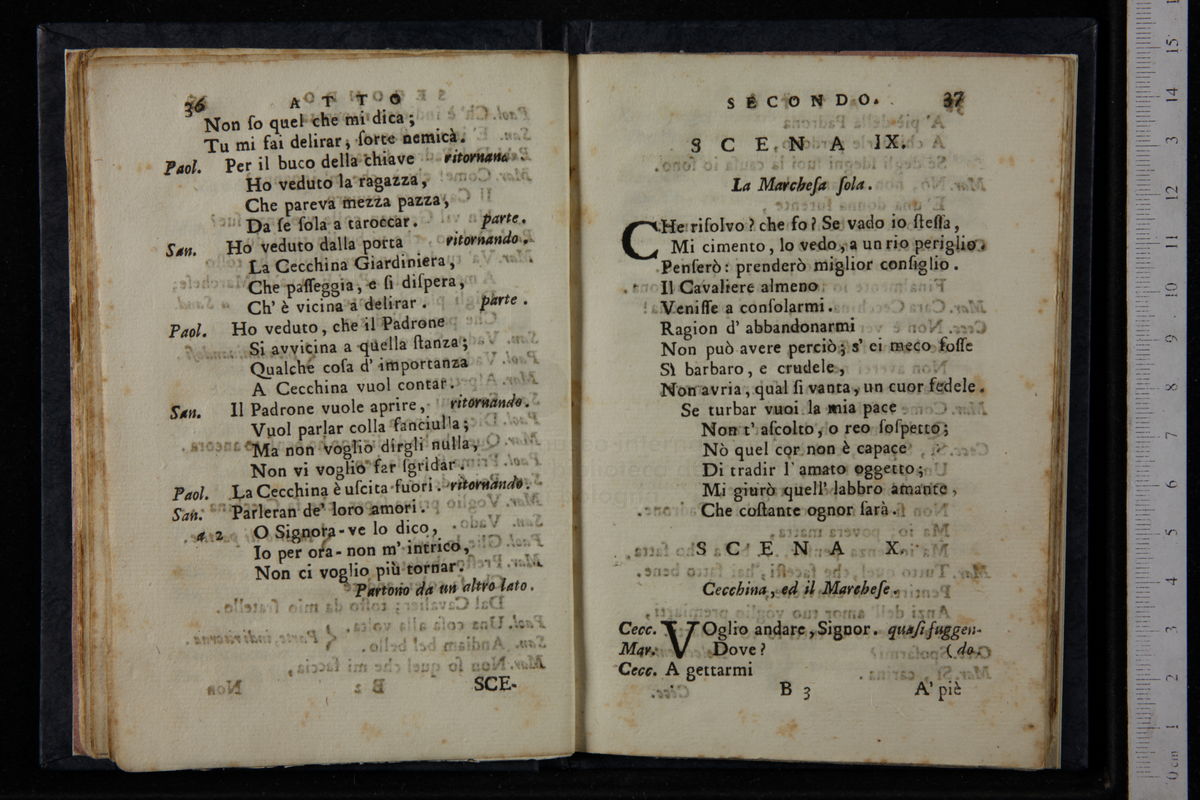 36 ATTO
Non ſo quel che mi dica;
Tu mi fai delirar, ſorte nemica.
Paol. Per il buco della chiave ritornano.
Ho veduto la ragazza,
Che pareva mezza pazza,
Da ſe ſola a taroccar. parte.
San. Ho veduto dalla porta ritornando.
La Cecchina Giardiniera,
Che paſſeggia, e ſi diſpera,
Ch' è vicina a delirar. parte.
Paol. Ho veduto, che il Padrone
Si avvicina a quella ſtanza;
Qualche coſa d' importanza
A Cecchina vuol contar.
San. Il Padrone vuole aprire, ritornando.
Vuol parlar colla fanciulla;
Ma non voglio dirgli nulla,
Non vi voglio far ſgridar.
Paol. La Cecchina è uſcita fuori. ritornando.
San. Parleran de' loro amori.
a 2 O Signora-ve lo dico,
Io per ora-non m' intrico,
Non ci voglio più tornar.
Partono da un altro lato.
SCE-
SECONDO. 37
SCENA IX.
La Marcheſa ſola.
CHe riſolvo? che fo? Se vado io ſteſſa,
Mi cimento, lo vedo, a un rio periglio.
Penſerò: prenderò miglior conſiglio.
Il Cavaliere almeno
Veniſſe a conſolarmi.
Ragion d' abbandonarmi
Non può avere perciò; s' ei meco foſſe
Sì barbaro, e crudele,
Non avria, qual ſi vanta, un cuor fedele.
Se turbar vuoi la mia pace
Non t' aſcolto, o reo ſoſpetto;
Nò quel cor non è capace
Di tradir l' amato oggetto;
Mi giurò quell' labbro amante,
Che coſtante ognor ſarà.
SCENA X.
Cecchina, ed il Marcheſe.
Cecc. VOglio andare, Signor. quaſi fuggen-
Mar. Dove? (do.
Cecc. A gettarmi
B 3 A' piè